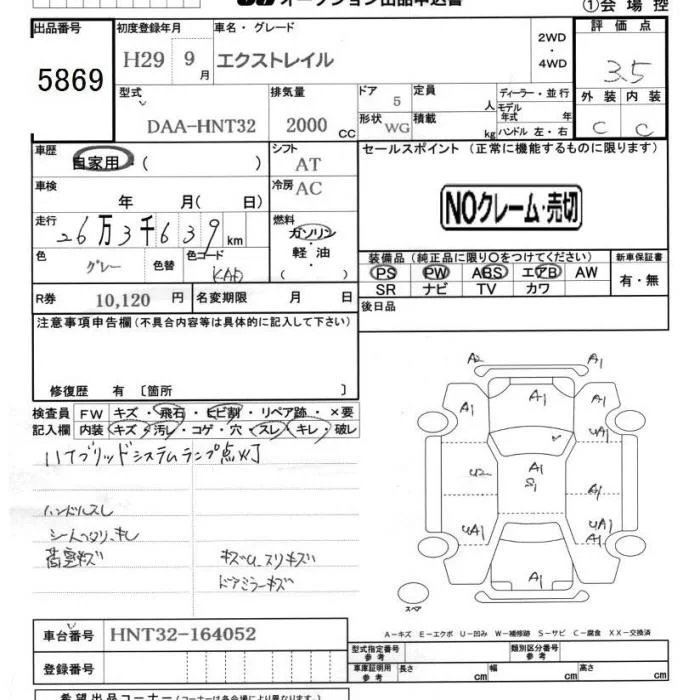 オークション出品申込書
①会場控
出品番号 5869
初度登録年月 H29 9月
車名・グレード エクストレイル
2WD・4WD
評価点 3.5
型式 DAA-HNT32
排気量 2000 CC
ドア 5
形状 WG
定員 人
積載 kg
ディーラー・並行
モデル年式 年
ハンドル 左・右
外装 C
内装 C
車歴 自家用・( )
シフト AT
セールスポイント (正常に機能するものに限ります)
車検 年 月( 日)
冷房 AC
NOクレーム・売切
走行 26万3千639km
燃料 ガソリン・軽油・( )
色 グレー
色替
色コード KAD
装備品(純正品に限り○をつけてください)
PS PW ABS エアB AW
SR ナビ TV カワ
新車保証書 有・無
R券 10,120円
名変期限 月 日
後日品
注意事項申告欄(不具合内容等は具体的に記入して下さい)
修復歴 有 〔箇所 〕
検査員記入欄
FW キズ・飛石・ヒビ割・リペア跡・×要
内装 キズ・汚レ・コゲ・穴・スレ・キレ・破レ
ハイブリッドシステムランプ点灯
ハンドルスレ
シートヘタリ、キレ
荷室キズ
キズU、スリキズ
ドアミラーキズ
A2 A1
A1 A1 A1
UA1
U2 A1 S1 A1
UA1 UA1 A1
A1
スペア
A-キズ E-エクボ U-凹み W-補修跡 S-サビ C-腐食 XX-交換済
車台番号 HNT32-164052
登録番号
型式指定番号 参考
類別区分番号 参考
車庫証明用 参考 長さ cm 幅 cm 高さ cm
希望出品コーナー(コーナーは各会場により異なります。)